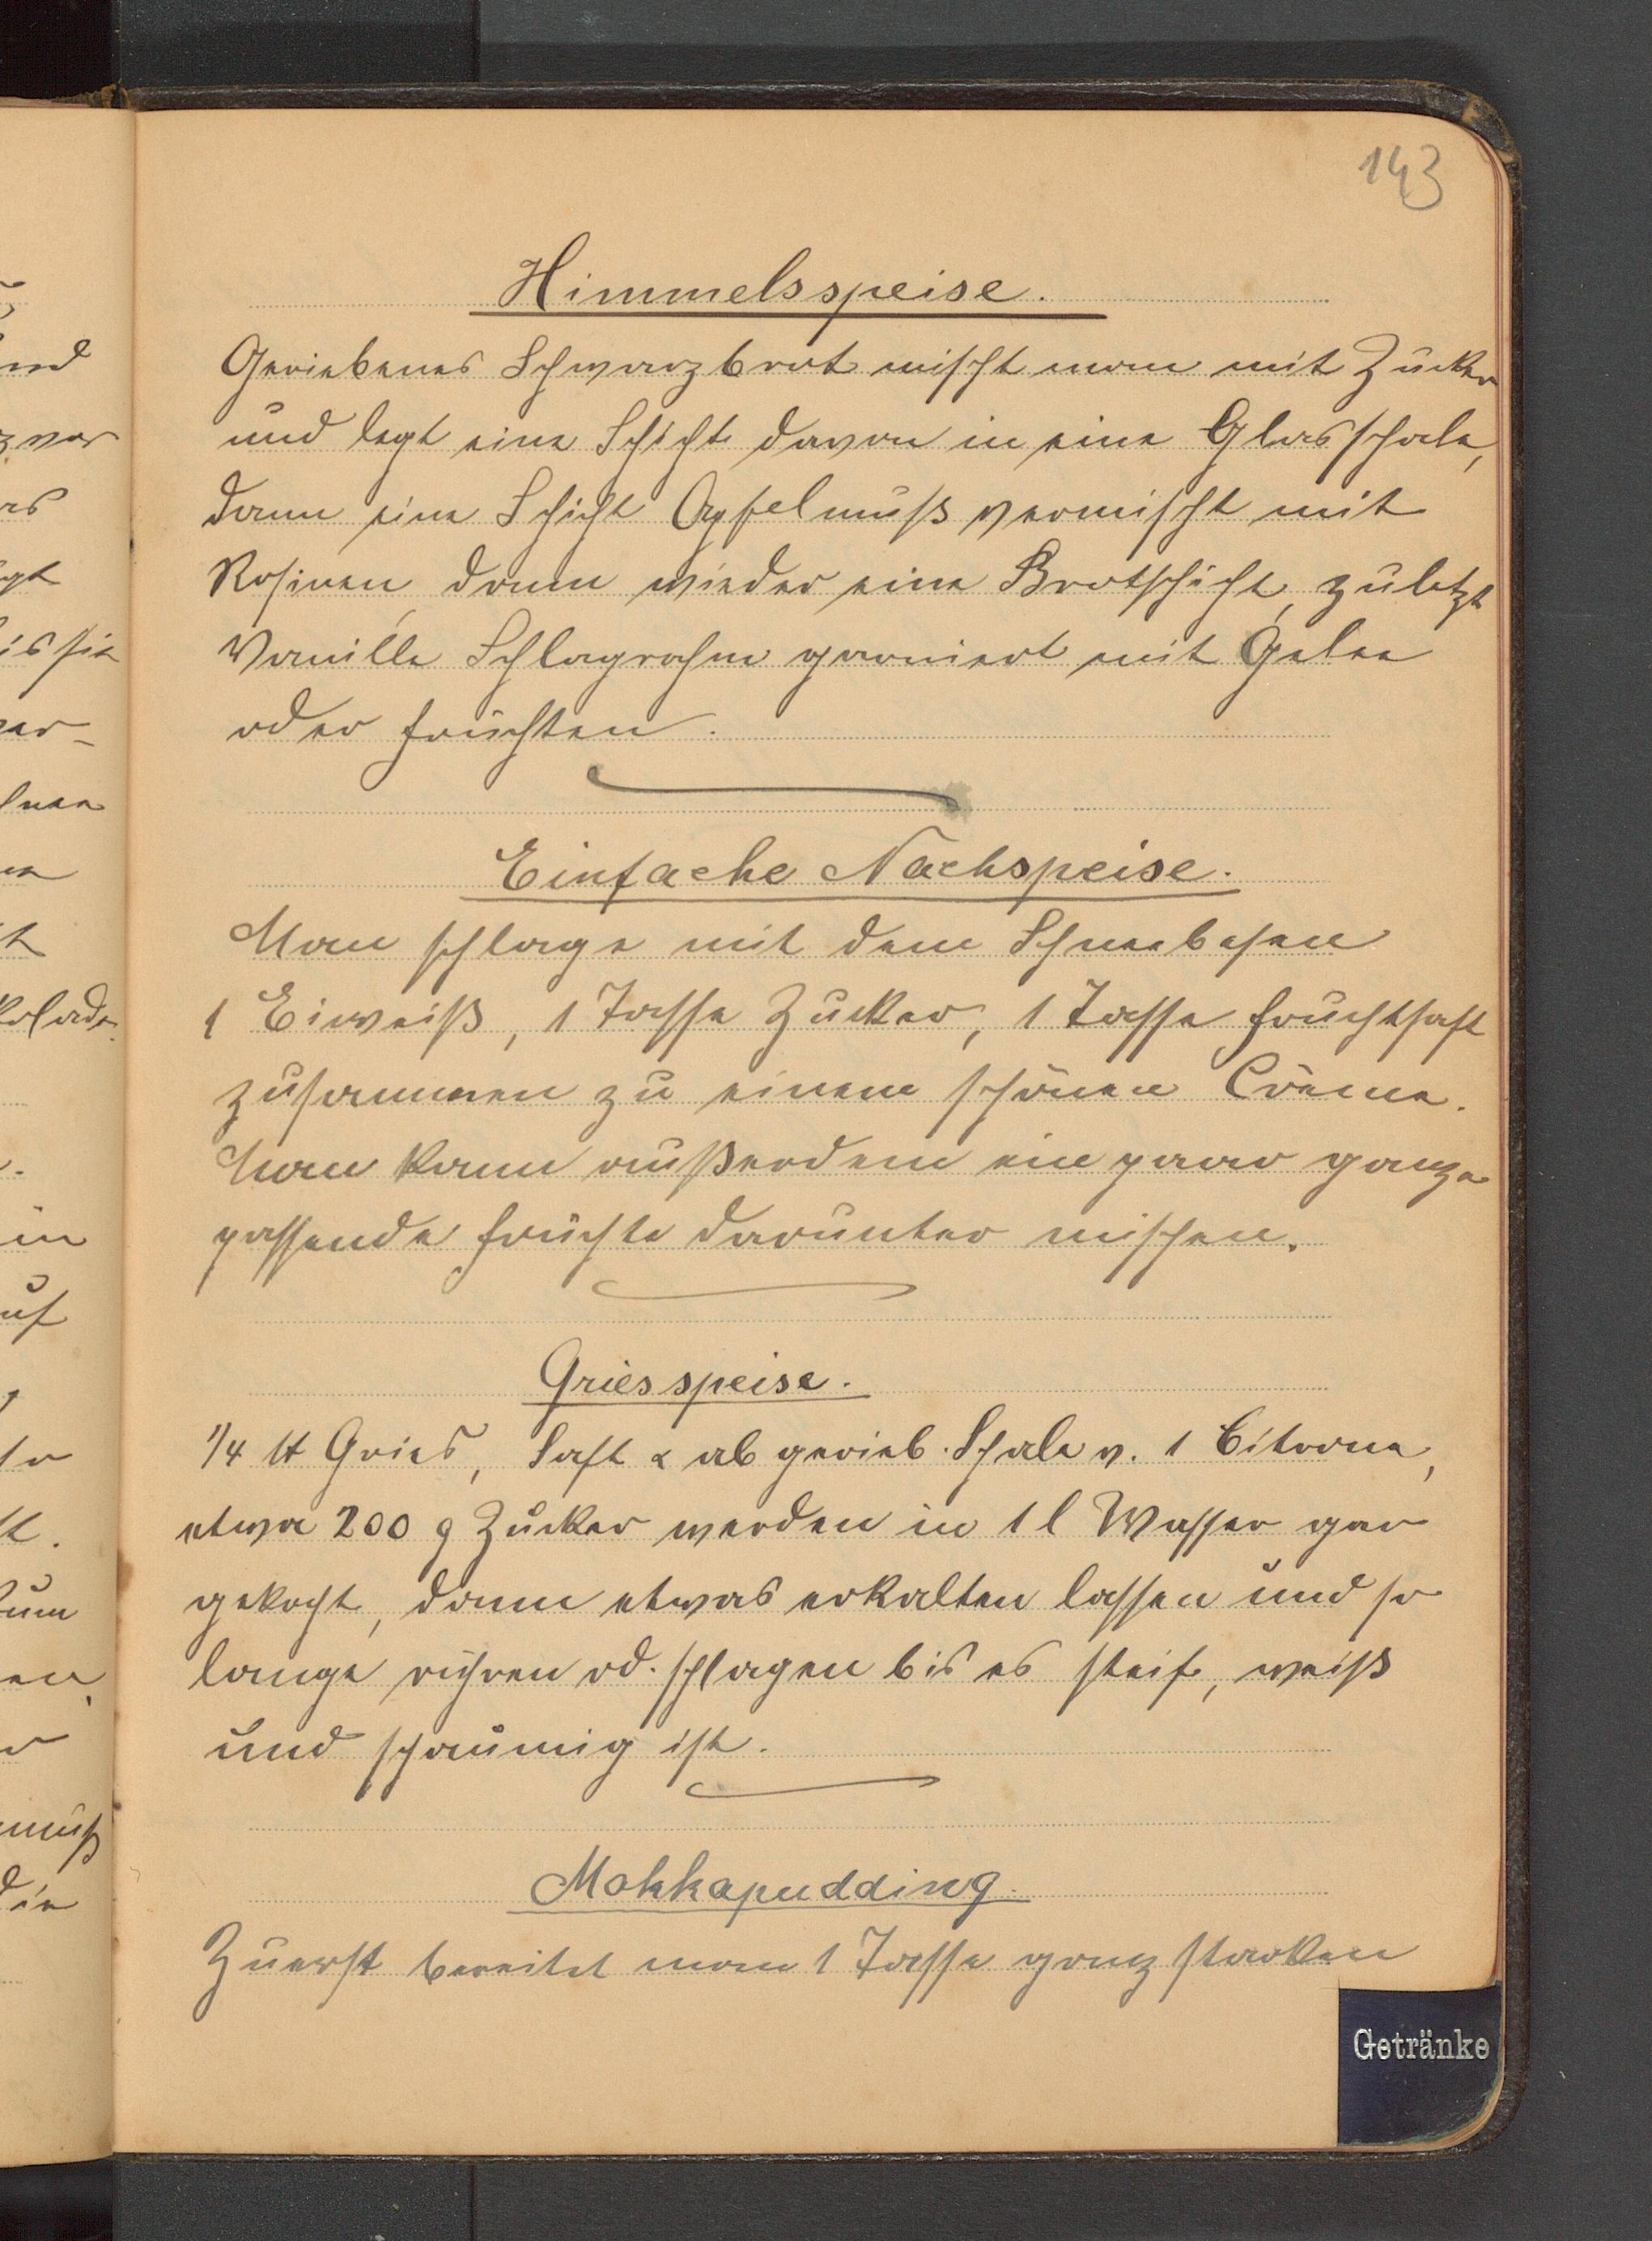 143
Himmelsspeise.
Geriebenes Schwarzbrot mischt man mit Zucker
und legt eine Schicht davon in eine Glasschale,
dann eine Schicht Apfelmuß vermischt mit
Rosinen, dann wieder eine Brotschicht, zuletzt
Vanille Schlagrahm garniert mit Gelee
oder Früchten.
Einfache Nachspeise.
Man schlage mit dem Schneebesen
1 Eiweiß, 1 Tasse Zucker, 1 Tasse Fruchtsaft
zusammen zu einem schönen Crème.
Man kann außerdem ein paar ganze
passende Früchte darunter mischen.
Griesspeise.
1/4 ℔ Gries, Saft & abgerieb. Schale v. 1 Citrone,
etwa 200 g Zucker werden in 1 l Wasser gar
gekocht, dann etwas erkalten lassen und so
lange rühren od. schlagen bis es steif, weiß
und schaumig ist.
Mokkapudding.
Zuerst bereitet man 1 Tasse ganz starken
Getränke